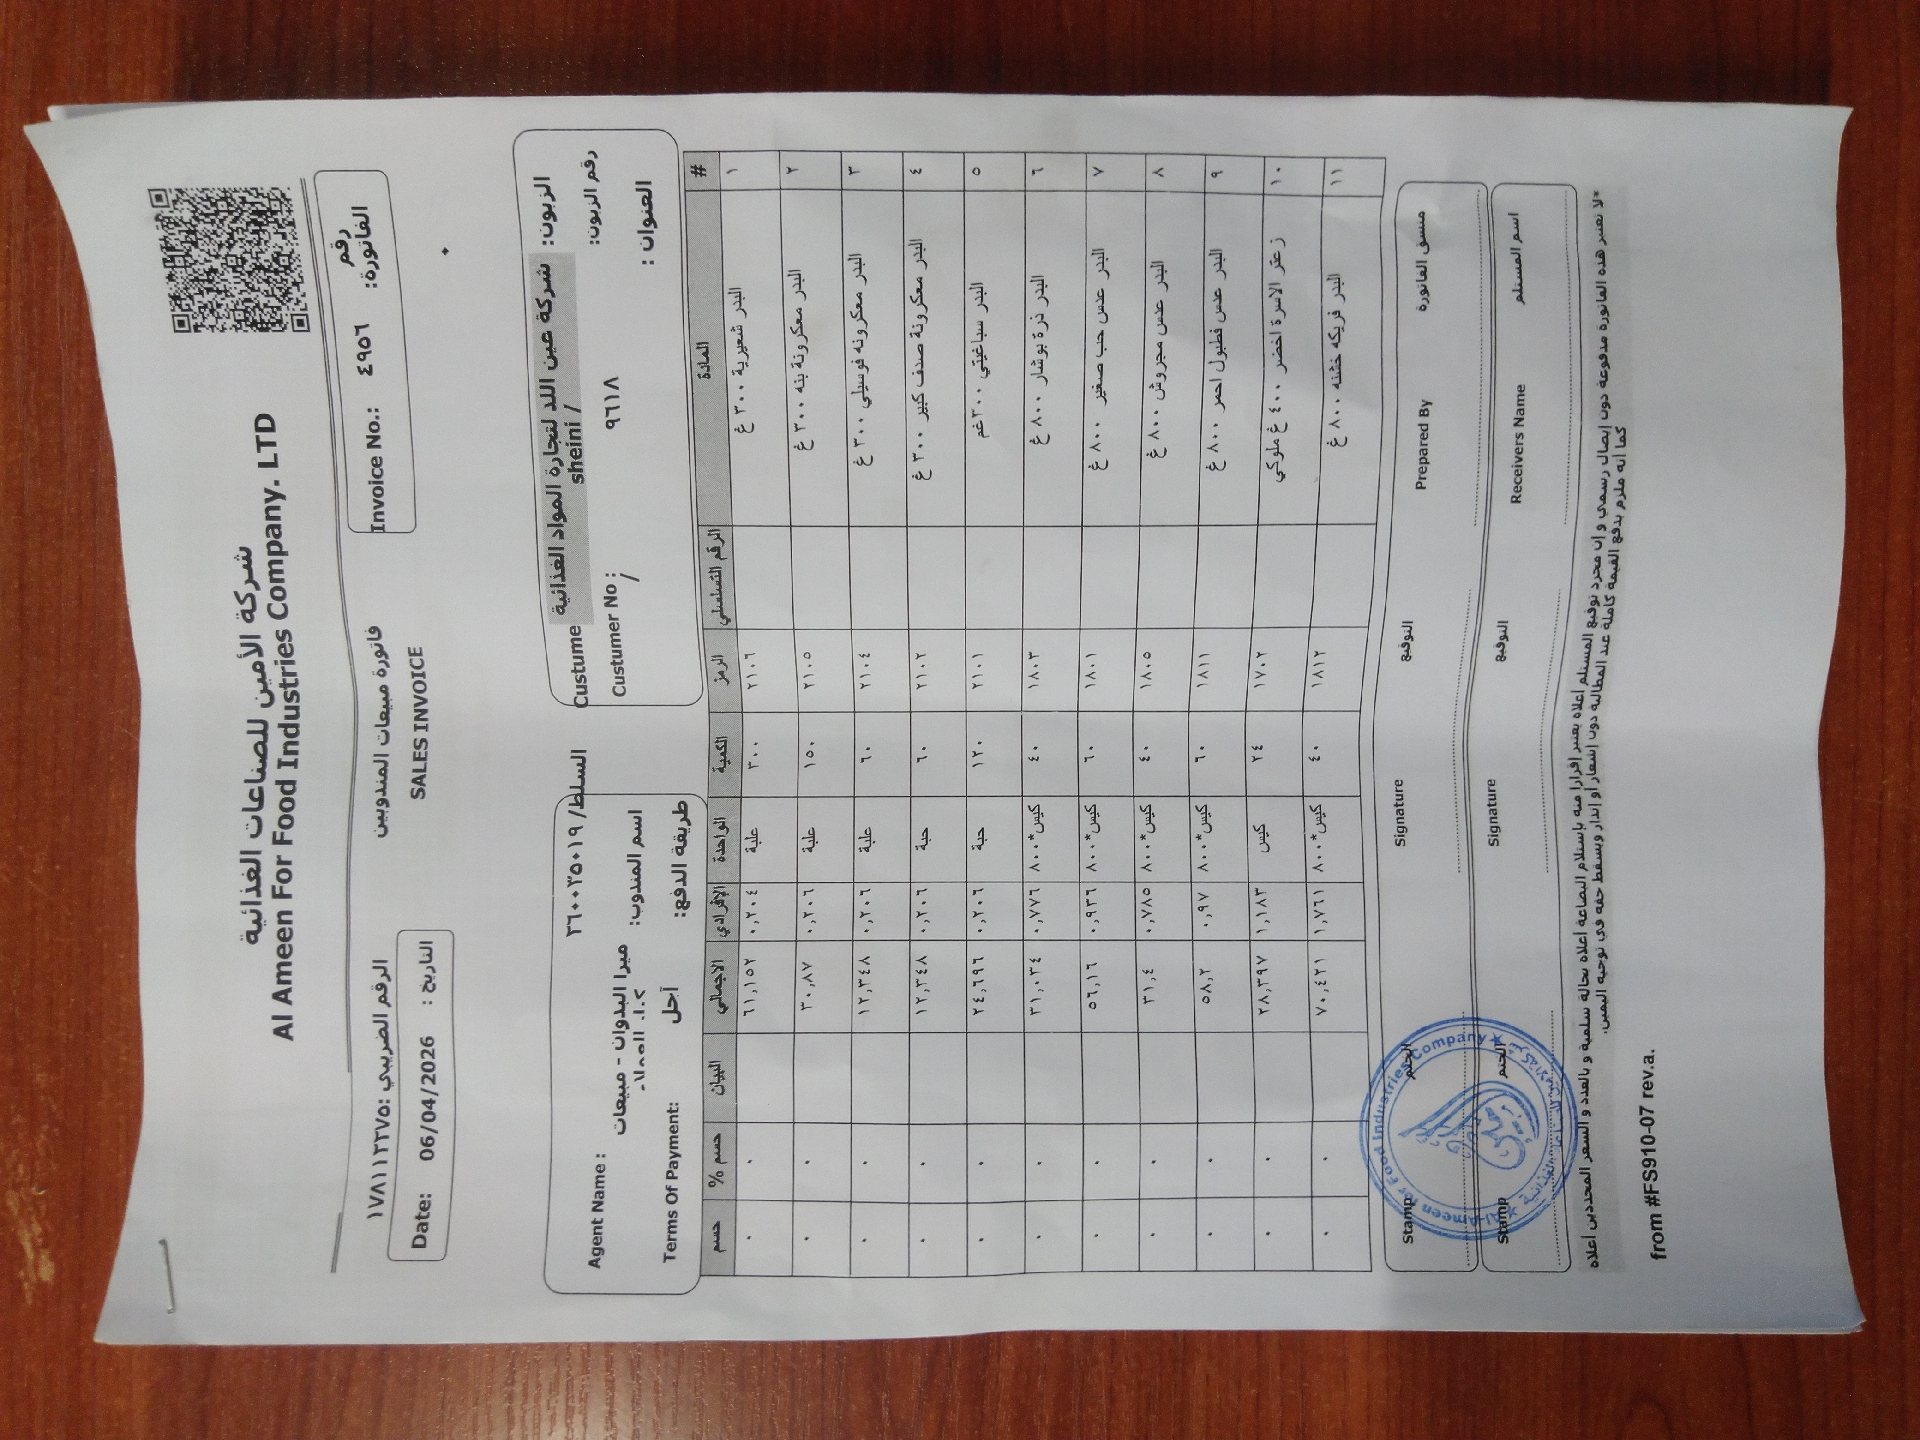 شركة الأمين للصناعات الغذائية
Al Ameen For Food Industries Company. LTD
رقم الفاتورة: ٤٩٥٦ Invoice No.:
فاتورة مبيعات المندوبين
SALES INVOICE
الرقم الضريبي :١٧٨١١٣٣٧٥
Date: 06/04/2026 التاريخ :
الزبون: شركة عين اللد لتجارة المواد الغذائية / sheini Custume
رقم الزبون: ٩٦١٨ Custumer No :
العنوان : /
السلط/ ٣٦٠٠٣٥٠١٩
Agent Name : ميرا البدوان - مبيعات اسم المندوب:
Terms Of Payment: آجل طريقة الدفع:
# المادة الرقم التسلسلي الرمز الكمية الواحدة الإفرادي الاجمالي البيان حسم % حسم
١ البدر شعيرية ٣٠٠ غ ٢١٠٦ ٣٠٠ علبة ٠,٢٠٤ ٦١,١٥٢ ٠ ٠
٢ البدر معكرونة بنه ٣٠٠ غ ٢١٠٥ ١٥٠ علبة ٠,٢٠٦ ٣٠,٨٧ ٠ ٠
٣ البدر معكرونه فوسيلي ٣٠٠ غ ٢١٠٤ ٦٠ علبة ٠,٢٠٦ ١٢,٣٤٨ ٠ ٠
٤ البدر معكرونة صدف كبير ٣٠٠ غ ٢١٠٢ ٦٠ حبة ٠,٢٠٦ ١٢,٣٤٨ ٠ ٠
٥ البدر سباغيتي ٣٠٠غم ٢١٠١ ١٢٠ حبة ٠,٢٠٦ ٢٤,٦٩٦ ٠ ٠
٦ البدر ذرة بوشار ٨٠٠ غ ١٨٠٣ ٤٠ كيس*٨٠٠ ٠,٧٧٦ ٣١,٠٣٤ ٠ ٠
٧ البدر عدس حب صغير ٨٠٠ غ ١٨٠١ ٦٠ كيس*٨٠٠ ٠,٩٣٦ ٥٦,١٦ ٠ ٠
٨ البدر عدس مجروش ٨٠٠ غ ١٨٠٥ ٤٠ كيس*٨٠٠ ٠,٧٨٥ ٣١,٤ ٠ ٠
٩ البدر عدس فطبول احمر ٨٠٠ غ ١٨١١ ٦٠ كيس*٨٠٠ ٠,٩٧ ٥٨,٢ ٠ ٠
١٠ زعتر الاسرة اخضر ٤٠٠ غ ملوكي ١٧٠٢ ٢٤ كيس ١,١٨٣ ٢٨,٣٩٧ ٠ ٠
١١ البدر فريكه خشنه ٨٠٠ غ ١٨١٢ ٤٠ كيس*٨٠٠ ١,٧٦١ ٧٠,٤٢١ ٠ ٠
منسق الفاتورة Prepared By التوقيع Signature الختم Stamp
اسم المستلم Receivers Name التوقيع Signature الختم Stamp
Al-Ameen for Food Industries Company
*لا تعتبر هذه الفاتورة مدفوعة دون إيصال رسمي و إن مجرد توقيع المستلم أعلاه يعتبر إقرارا منه بإستلام البضاعة أعلاه بحالة سليمة و بالعدد و السعر المحددين أعلاه
كما أنه ملزم بدفع القيمة كاملة عند المطالبة دون إشعار أو إنذار ويسقط حقه في توجيه اليمين.
from #FS910-07 rev.a.